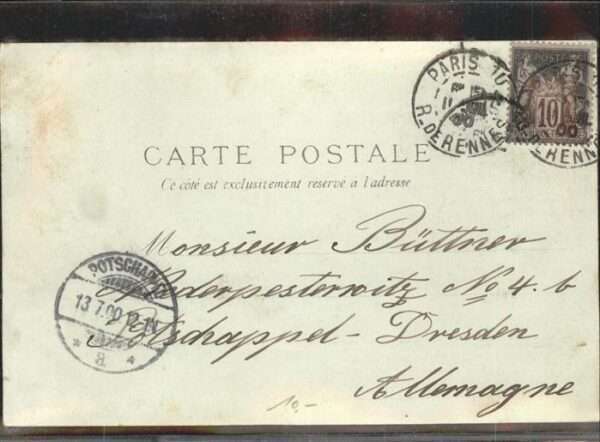 PARIS 10
R. DE RENNES
10
00
CARTE POSTALE
Ce côté est exclusivement reservé a l'adresse
Monsieur Büttner
Niederpesterwitz No 4. b
Potschappel - Dresden
Allemagne
POTSCHAPPEL
13 7.00 12-1N
* a *
10,-